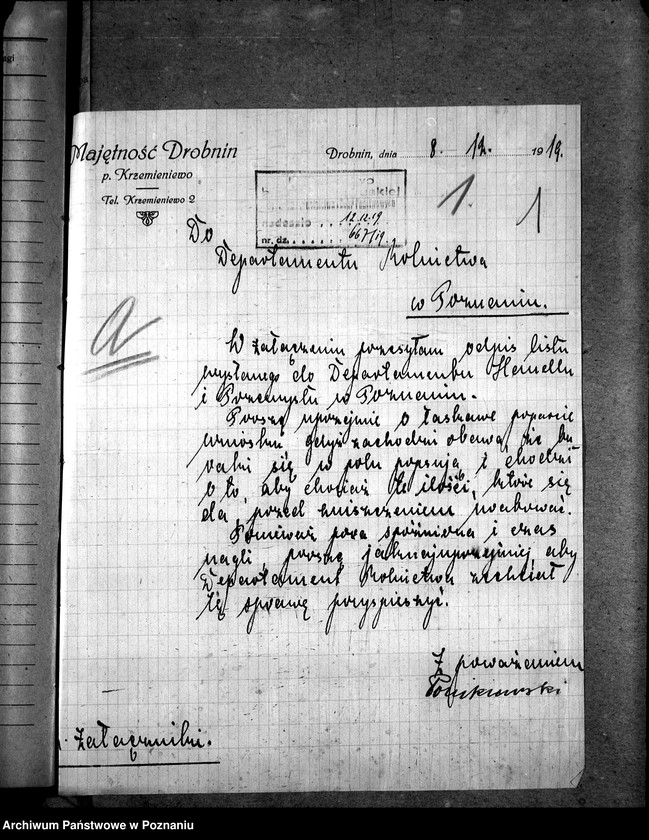 Majętność Drobnin
p. Krzemieniewo
Tel. Krzemieniewo 2
Drobnin, dnia 8. 12. 1919.
nadeszło 12.12.19
nr. dz. 667/19.
1.
1
Do
Departamentu Rolnictwa
w Poznaniu.
a
W załączeniu przesyłam odpis listu
wysłanego do Departamentu Handlu
i Przemysłu w Poznaniu.
Proszę uprzejmie o łaskawe poparcie
wniosku gdyż zachodzi obawa, że bu
raki się w polu popsują i chodzi
o to, aby chociaż te ilości, które się
da, przed zniszczeniem uratować.
Ponieważ pora spóźniona i czas
nagli, proszę jaknajuprzejmiej aby
Departament Rolnictwa zechciał
tę sprawę przyspieszyć.
Z poważaniem
Ponikiewski
1. załącznik.
Archiwum Państwowe w Poznaniu